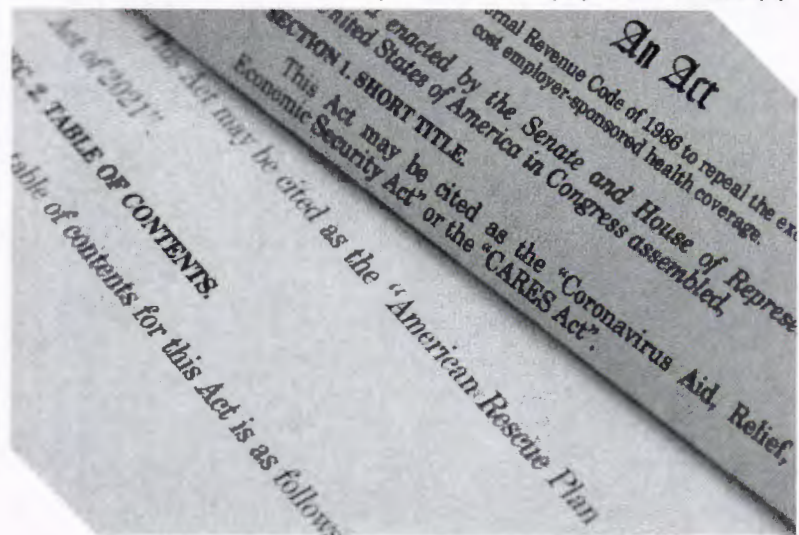 An Act
rnal Revenue Code of 1986 to repeal the exc
cost employer-sponsored health coverage.
enacted by the Senate and House of Represe
United States of America in Congress assembled,
SECTION 1. SHORT TITLE.
This Act may be cited as the "Coronavirus Aid, Relief,
Economic Security Act" or the "CARES Act".
This Act may be cited as the "American Rescue Plan
Act of 2021".
EC. 2. TABLE OF CONTENTS.
table of contents for this Act is as follows